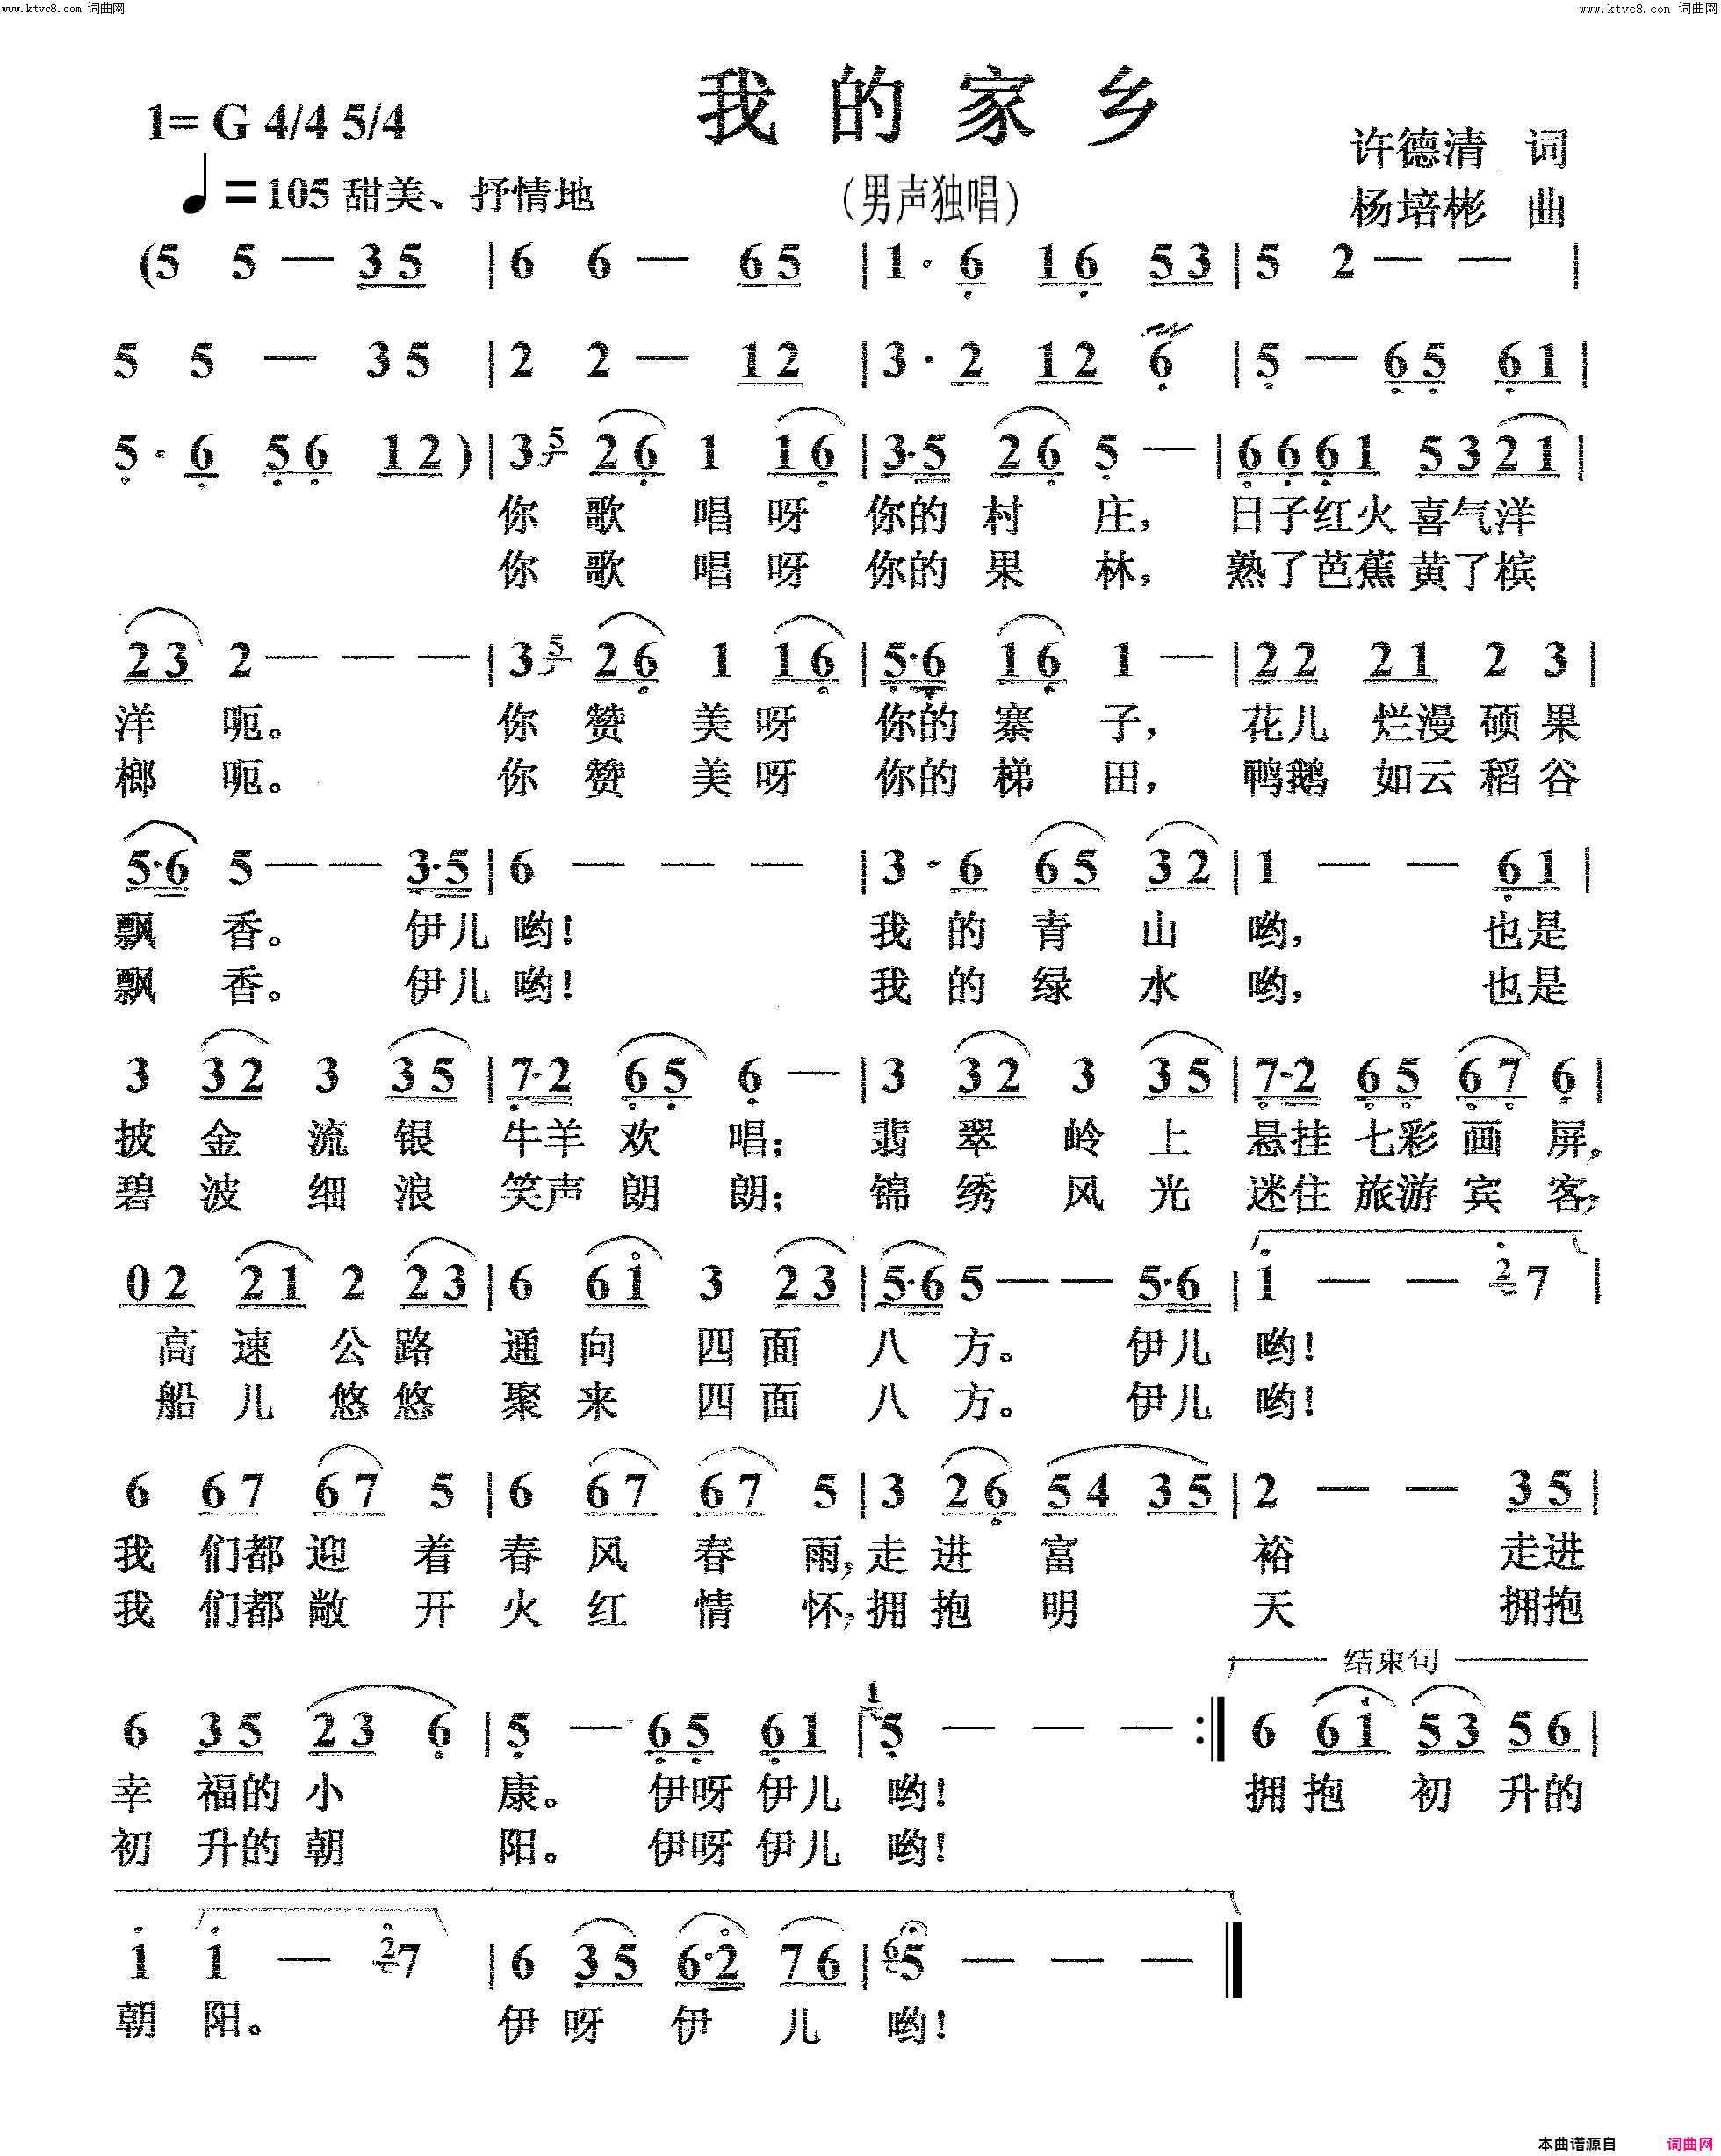 www.ktvc8.com 词曲网 www.ktvc8.com 词曲网
我的家乡
1= G 4/4 5/4
许德清 词
♩=105 甜美、抒情地 (男声独唱) 杨培彬 曲
(5 5 — 3 5 | 6 6 — 6 5 | 1 · 6 1 6 5 3 | 5 2 — — |
5 5 — 3 5 | 2 2 — 1 2 | 3 · 2 1 2 6 | 5 — 6 5 6 1 |
5 · 6 5 6 1 2 ) | 3 5 2 6 1 1 6 | 3 · 5 2 6 5 — | 6 6 6 1 5 3 2 1 |
你 歌 唱 呀 你的 村 庄, 日子红火 喜气洋
你 歌 唱 呀 你的 果 林, 熟了芭蕉 黄了槟
2 3 2 — — — | 3 5 2 6 1 1 6 | 5 · 6 1 6 1 — | 2 2 2 1 2 3 |
洋 呃。 你 赞 美 呀 你的 寨 子, 花儿 烂漫 硕 果
榔 呃。 你 赞 美 呀 你的 梯 田, 鸭鹅 如云 稻 谷
5 · 6 5 — — 3 · 5 | 6 — — — | 3 · 6 6 5 3 2 | 1 — — 6 1 |
飘 香。 伊儿 哟! 我 的 青 山 哟, 也是
飘 香。 伊儿 哟! 我 的 绿 水 哟, 也是
3 3 2 3 3 5 | 7 · 2 6 5 6 — | 3 3 2 3 3 5 | 7 · 2 6 5 6 7 6 |
披 金 流 银 牛羊 欢 唱; 翡 翠 岭 上 悬挂 七彩 画 屏。
碧 波 细 浪 笑声 朗 朗; 锦 绣 风 光 迷住 旅游 宾 客;
0 2 2 1 2 2 3 | 6 6 1 3 2 3 | 5 · 6 5 — — 5 · 6 | 1 — — 2 7 |
高 速 公 路 通 向 四 面 八 方。 伊儿 哟!
船 儿 悠 悠 聚 来 四 面 八 方。 伊儿 哟!
6 6 7 6 7 5 | 6 6 7 6 7 5 | 3 2 6 5 4 3 5 | 2 — — 3 5 |
我 们都 迎 着 春 风 春 雨, 走 进 富 裕 走进
我 们都 敞 开 火 红 情 怀, 拥 抱 明 天 拥抱
结束句
6 3 5 2 3 6 | 5 — 6 5 6 1 | 1 5 — — — :‖ 6 6 1 5 3 5 6 |
幸 福的 小 康。 伊呀 伊儿 哟! 拥 抱 初 升的
初 升的 朝 阳。 伊呀 伊儿 哟!
1 1 — 2 7 | 6 3 5 6 · 2 7 6 | 6 5 — — — ‖
朝 阳。 伊 呀 伊 儿 哟!
本曲谱源自 词曲网